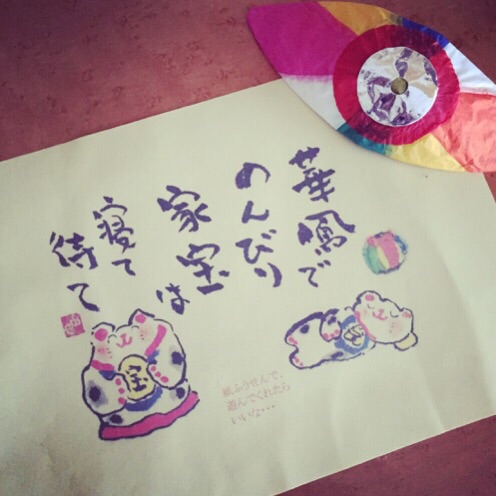 華鳳で
のんびり
家宝は
寝て
待て
宝
宝
紙ふうせんで、
遊んでくれたら
いいな…